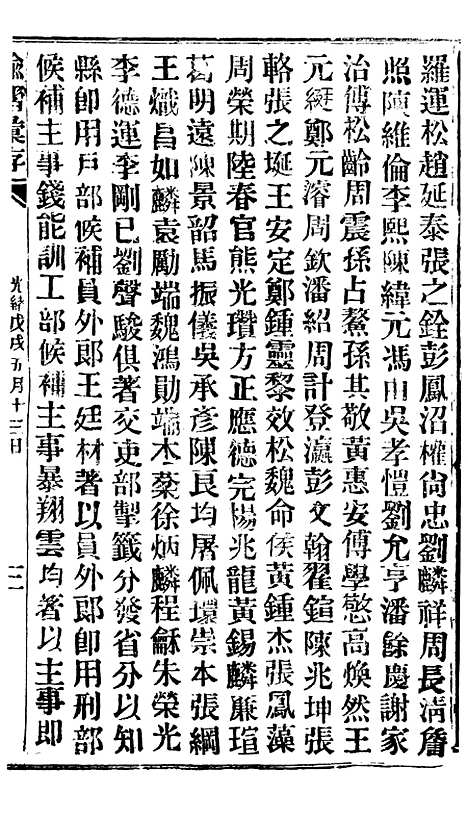 羅運松趙延泰張之銓彭鳳沼權尙忠劉麟祥周長淸詹
照陳維倫李熙陳緯元馮由吳孝愷劉允亨潘餘慶謝家
治傅松齡周震孫占鰲孫其敬黃惠安傅學慤高煥然王
元綎鄭元濬周欽潘紹周計登瀛彭文翰翟鍹陳兆坤張
輅張之挻王安定鄭鍾靈黎效松魏命侯黃鍾杰張鳳藻
周榮期陸春官熊光瓚方正應德完楊兆龍黃錫麟廉瑄
葛明遠陳景韶馬振儀吳承彥陳良均屠佩環崇本張綱
王熾昌如麟袁勵端魏鴻勛端木棻徐炳麟程龢朱榮光
李德運李剛已劉聲駿俱著交吏部掣籤分發省分以知
縣卽用戶部候補員外郎王廷材著以員外郎卽用刑部
候補主事錢能訓工部候補主事暴翔雲均著以主事卽
諭摺彙存
光緖戊戌五月十三日